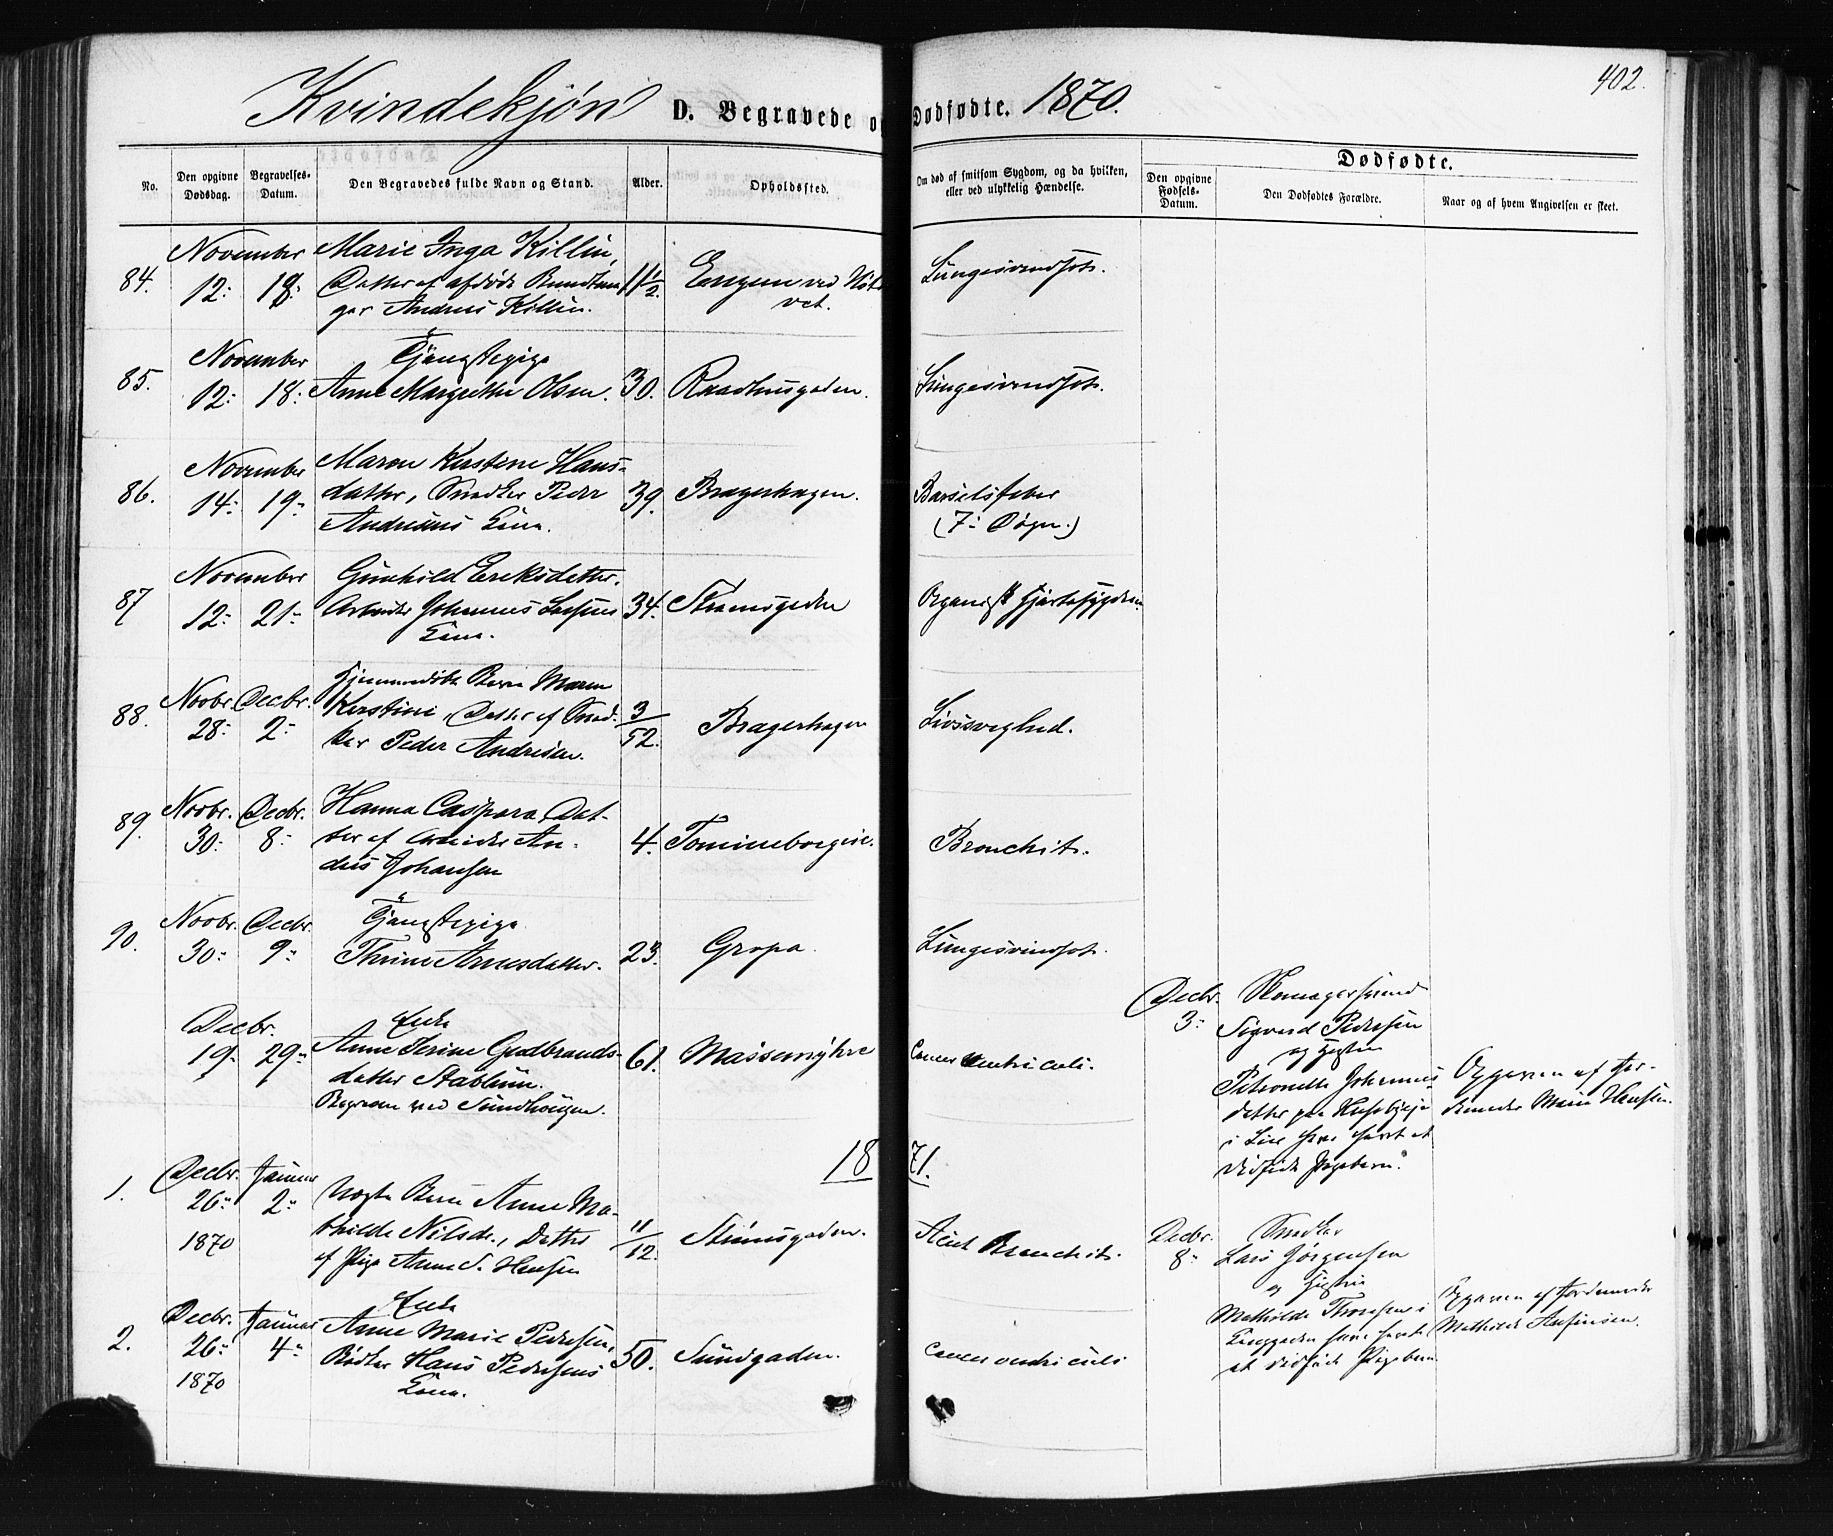 402.
Kvindekjøn D. Begravede og Dødfødte. 1870.
No.
Den opgivne Dødsdag.
Begravelses-Datum.
Den Begravedes fulde Navn og Stand.
Alder.
Opholdssted.
Om død af smitsom Sygdom, og da hvilken, eller ved ulykkelig Hændelse.
Dødfødte.
Den opgivne Fødsels-Datum.
Den Dødfødtes Forældre.
Naar og af hvem Angivelsen er skeet.
84.
November
12: 18:
Marie Inga Killin,
Datter af afdøde
Andreas Killin.
11 1/2.
Engen ved
vet.
Lungesvindsot.
85.
November
12: 18:
Tjenestepige
Anne Margrethe Olsen.
30.
Raadhusgaden.
Lungesvindsot.
86.
November
14: 19:
Maren Kirstine Hans-
datter, Snedker Peder
Andreasens Kone.
39.
Bragerhagen.
Barselsfeber
(7: Døgn.)
87
November
12: 21:
Gunhild Eriksdatter.
Arbeider Johannes Larsens
Kone.
34.
Strømsgaden
Organisk Hjertesygdom
88.
Novbr. Decbr.
28: 2:
Hjemmedøbt Barn Maren
Kirstine, Datter af Sned-
ker Peder Andreasen.
3/52.
Bragerhagen
Livssvaghed.
89.
Novbr. Decbr.
30: 8:
Hanna Caspara, Dat-
ter af Arbeider An-
dreas Johansen
4.
Tomineborgveie.
Bronchit.
90.
Novbr. Decbr.
30: 9:
Tjenestepige
Thrine Arnesdatter.
23.
Gropa.
Lungesvindsot.
Decbr.
19: 29:
Enke
Anne Serine Gudbrands-
datter Stablum.
Begraven ved Sundhaugen.
61.
Massemyhre
Cancer ventriculi.
Decbr.
3:
Skomagersvend
Sigvard Pedersen
og Hustru
Petronelle Johannes-
datter paa
i Lier have havt et
dødfødt Pigebarn.
Opgaven af Jor-
demoder Marie Hansen.
1871.
1.
Decbr. Januar
26: 2:
1870
Uægte Barn Anne Ma-
thilde Nilsdr., Datter
af Pige Anne S. Hansen
11/12.
Strømsgaden.
Acut Bronchit.
Decbr.
8:
Snedker
Lars Jørgensen
og Hustru
Mathilde Thoresen i
Enggaden have havt
et dødfødt Pigebarn.
Opgaven af Jordemoder
Mathilde
2.
Decbr. Januar
26: 4:
1870
Enke
Anne Marie Pedersen,
Bødker Hans Pedersens
Kone.
50.
Sundgaden.
Cancer ventriculi